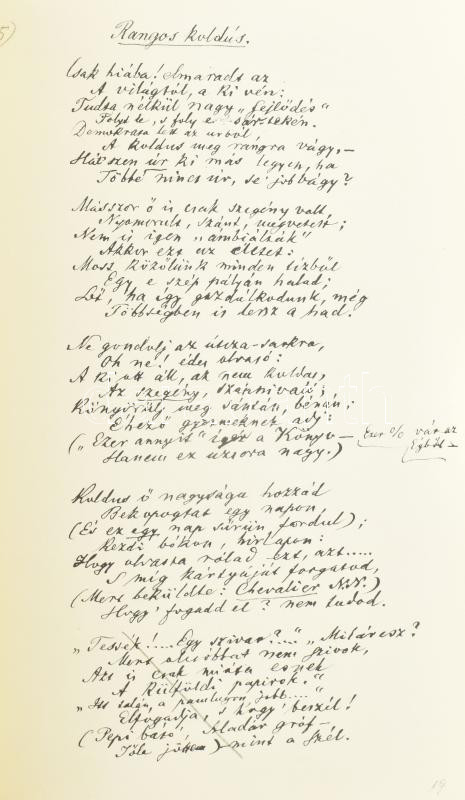 5)
Rangos koldús.
Csak hiába! elmaradt az
A világtól, a ki vén:
Tudta nélkül nagy „fejlődés"
Folyt le, s foly e sártekén.
Demokrata lett az úrból,
A koldus meg rangra vágy,—
Hát szen úr ki más legyen, ha
Többé nincs úr, se jobbágy?
Másszor ő is csak szegény volt
Nyomorult, szánt, megvetett;
Nem is igen „ambiálták"
Akkor ezt az életet:
Most közölünk minden tizbül
Egy, e szép pályán halad;
Sőt, ha így gazdálkodunk, még
Többségben is lesz a had.
Ne gondolj az útcza-sarkra,
Oh ne! édes olvasó:
A ki ott áll, az nem koldus,
Az szegény, szánnivaló;
Könyörülj meg sántán, bénán;
Éhező gyermeknek adj:
(„Ezer annyit" igér a Könyv—
Hanem ez uzsora nagy.)
Ezer % vár az Égből
Koldus ő nagysága hozzád
Bekopogtat egy napon,
(És ez egy nap sürün fordul);
Kezdi bókon, hirlapon:
Hogy olvasta rólad ezt, azt.....
S míg kártyáját forgatod,
(Mert beküldte: Chevalier N.N.)
Hogy' fogadd el? nem tudod.
„Tessék!.... Egy szivar?...." „Mitáresz?
Mert olcsóbbat nem szivok,
Azt is csak miólta esnek
A külföldi papirok."
„Itt talán, a pamlagon jobb...."
Elfogadja, s hogy' beszél!
(Pepi báró, Aladár gróf—
Tőle jönnek) — mint a szél.
19